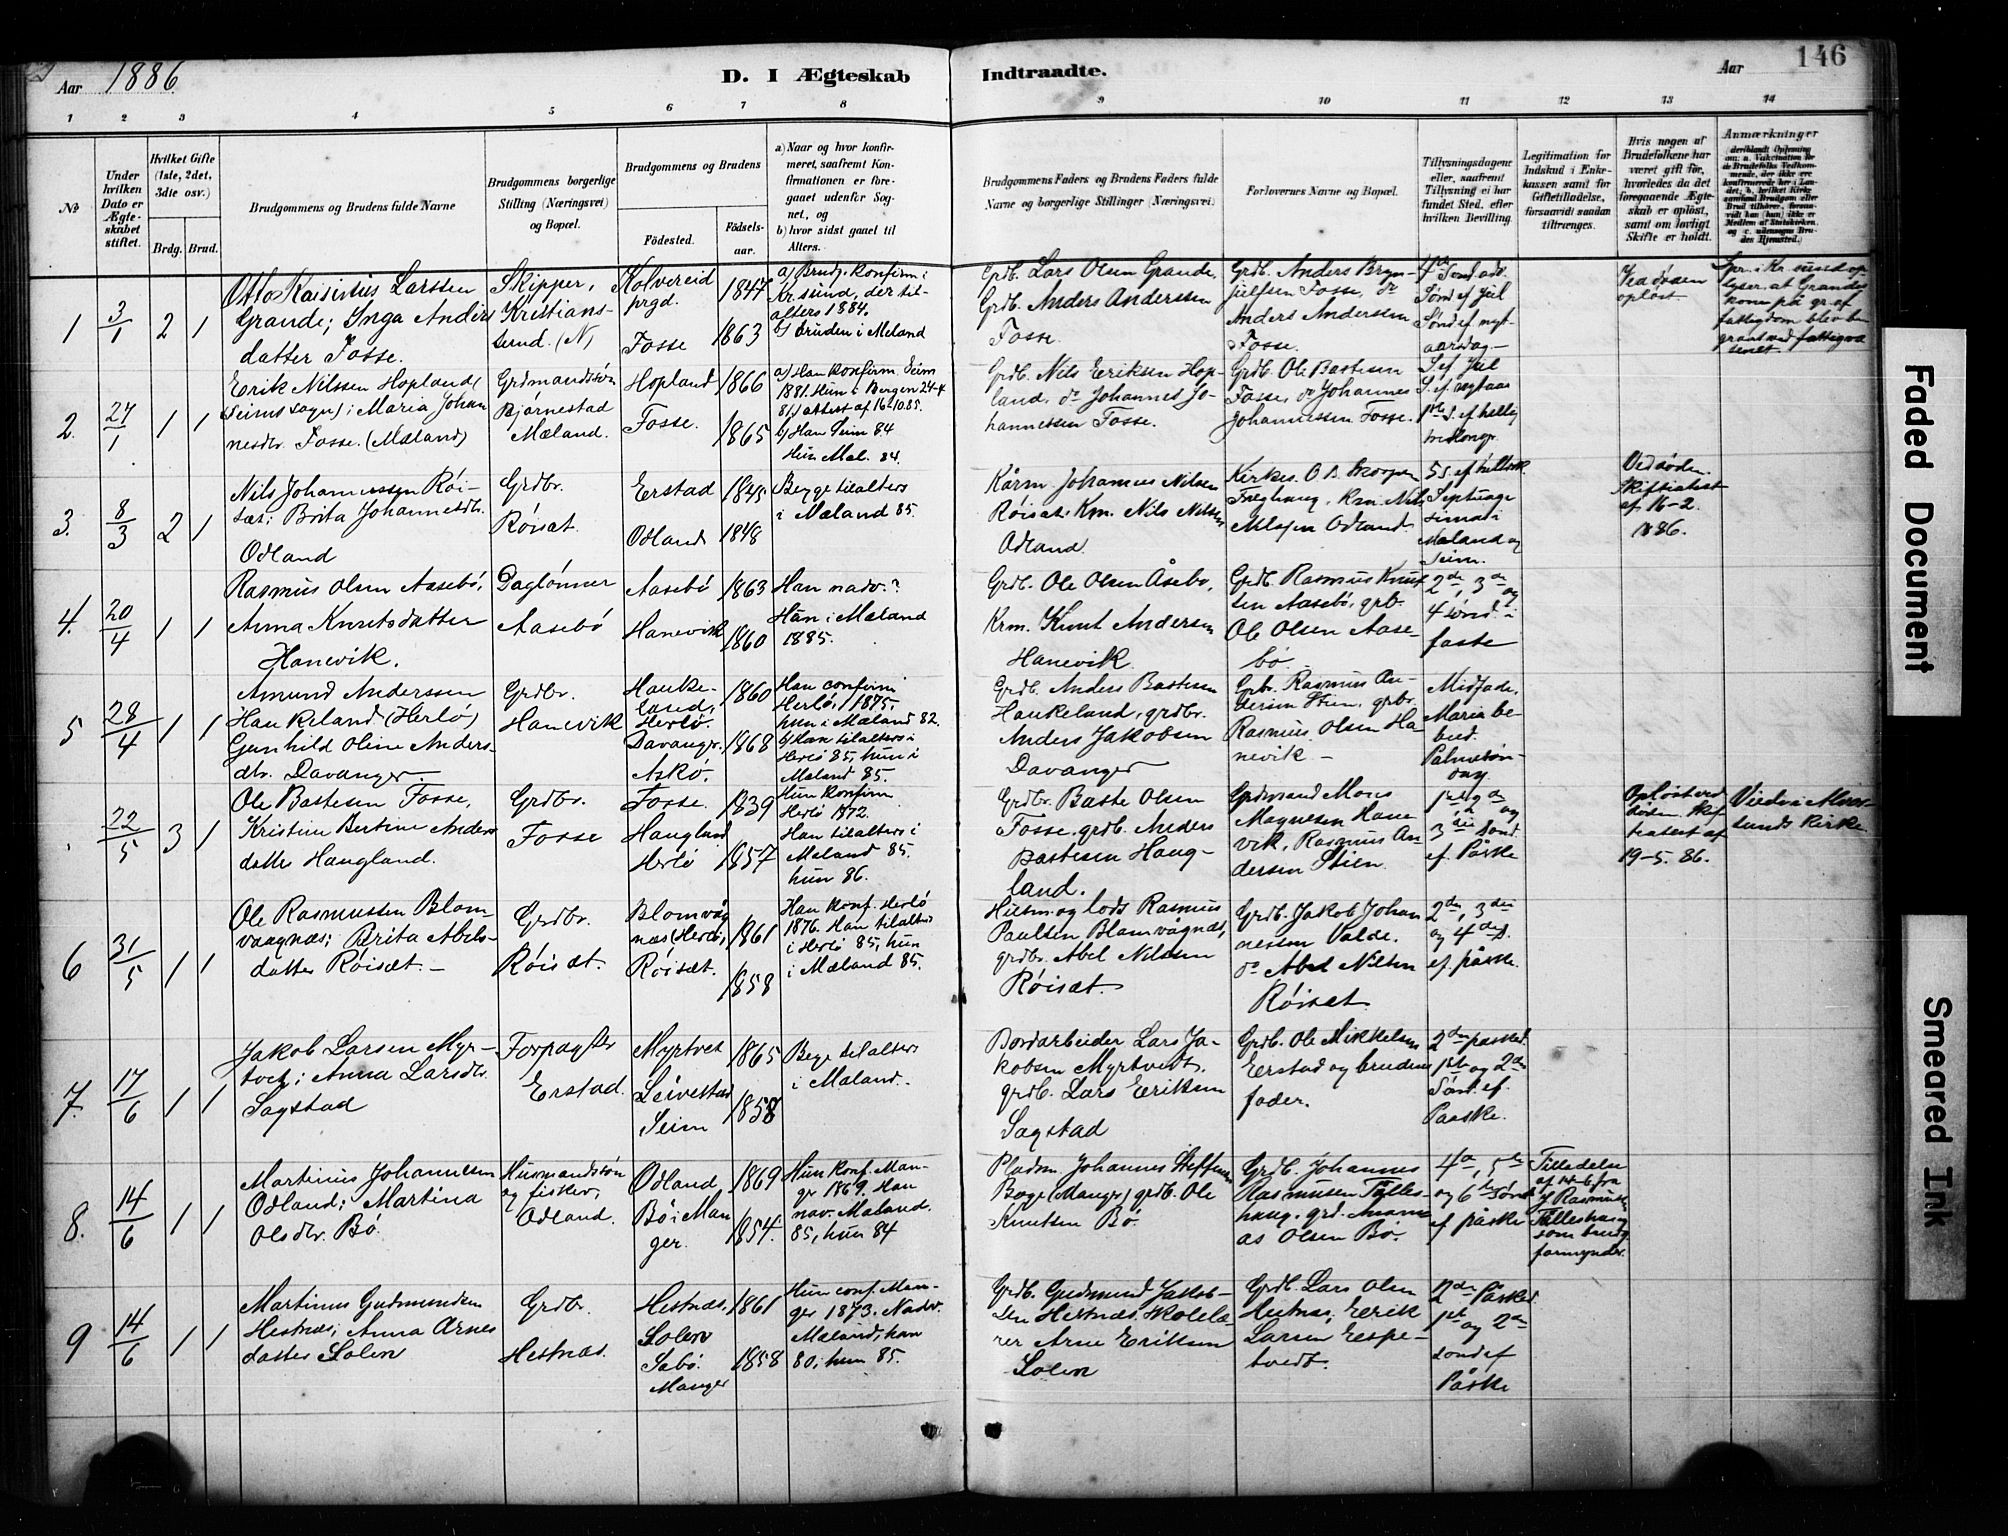 Aar 1886
D. I Ægteskab
Indtraadte.
Aar
146
1 2 3 4 5 6 7 8 9 10 11 12 13 14
No
Under
hvilken
Dato er
Ægte-
skabet
stiftet.
Hvilket Gifte
(1ste, 2det,
3die osv.)
Brdg. Brud.
Brudgommens og Brudens fulde Navne
Brudgommens borgerlige
Stilling (Næringsvei)
og Bopæl.
Brudgommens og Brudens
Födested.
Födsels-
aar.
a) Naar og hvor konfir-
meret, saafremt Kon-
firmationen er fore-
gaaet udenfor Sog-
net, og
b) hvor sidst gaaet til
Alters.
Brudgommens Faders og Brudens Faders fulde
Navne og borgerlige Stillinger (Næringsvei)
Forlovernes Navne og Bopæl.
Tillysningsdagene
eller, saafremt
Tillysning ei har
fundet Sted, efter
hvilken Bevilling.
Legitimation for
Indskud i Enke-
kassen samt for
Giftetilladelse,
forsaavidt saadan
tiltrænges.
Hvis nogen af
Brudefolkene har
været gift før,
hvorledes da det
foregaaende Ægte-
skab er opløst,
samt om lovligt
Skifte er holdt.
Anmærkninger
1 3/1 2 1
Larssen
Grande; Inga Anders
datter Fosse.
Skipper,
Kristians-
sund. (N)
Kolvereid
prgd.
Fosse
1847
1863
a) Brudg. konfirm i
Kr.sund, der til-
alters 1884.
b) Bruden i Meland
Grdb. Lars Olsen Grande,
Grdb. Anders Anderssen
Fosse.
Grdb. Anders Bryn-
julfsen Fosse, do
Anders Anderssen
Fosse.
Sønd ef Jul
Sønd ef nyt-
aarsdag
Ved døden
opløst
2. 27/1 1 1
Erik Nilssen Hopland,
(Seims sogn); Maria Johan
nesdtr. Fosse. (Mæland)
Grdmandssøn
Bjørnestad
Mæland.
Hopland
Fosse.
1866
1865
a) Han konfirm. Seim
1881. Hun i Bergen 24-4
81, attest af 16-10.85.
b) Han Seim 84
Hun Mæl. 84.
Grdb. Nils Eriksen Hop-
land, do Johannes Jo-
hannessen Fosse.
Grdb. Ole Bastesen
Fosse, do Johannes
Johannessen Fosse.
S. ef Jul
S. ef nytaar
1ste S. ef hellig
trekongr.
3. 8/3 2 1
Nils Johannessen Røi-
sæt; Brita Johannesdtr.
Odland
Grdbr.
Røisæt
Erstad
Odland
1845
1848
Begge tilalters
i Mæland 85.
Kårm. Johannes Nilsen
Røisæt. Km. Nils Nilsen
Odland.
Odland.
5 S. ef hellitrek
Septuage
sima i
Mæland og
Seim.
Ved døden.
Skifteatest
af 16-2.
1886.
4. 20/4 1 1
Rasmus Olsen Aasebø,
Anna Knutsdatter
Hanevik.
Daglønner
Aasebø
Aasebø
Hanevik
1863
1860
Han nadv.?
Hun i Mæland
1885.
Grdb. Ole Olsen Åsebø,
Krm. Knut Andersen
Hanevik
Grdb. Rasmus Knut
sen Aasebø, grb.
Ole Olsen Aase-
bø.
2de, 3de og
4 sønd. i
faste
5 28/4 1 1
Amund Anderssen
Haukeland (Herlø)
Gunhild Oline Anders-
dtr. Davanger
Grdbr.
Hanevik
Hauke-
land,
Herlø.
Davangr.
Askø.
1860
1868
Han confirm
Herlø, 1875,
hun i Mæland 82.
b) Han tilalters i
Herlø 85, hun i
Mæland 85.
Grdb. Anders Bastesen
Haukeland, grdbr.
Anders Jakobsen
Davanger
Grbr. Rasmus An-
dersen Stien, grbr.
Rasmus Olsen Ha
nevik
Midfaste,
Maria be-
bud.
Palmesøn-
dag.
22/5 3 1
Ole Bastesen Fosse,
Kristine Bertine Anders
datter Haugland.
Grdbr.
Fosse
Fosse.
Haugland
Herlø
1839
1857
Hun konfirm
Herlø 1872.
Han tilalters i
Mæland 85.
hun 86.
Grdbr. Baste Olsen
Fosse. grdb. Anders
Bastesen Haug-
land.
Grdmand Mons
Magnesen Hane
vik, Rasmus An-
dersen Stien.
1ste, 2de og
3die sønd.
ef. Påske
Opløst ved
døden. Skif-
teatest af
19-5. 86.
Viedei Alver-
sunds kirke.
6 31/5 1 1
Ole Rasmussen Blom-
vaagnæs; Berita Abels-
datter Røisæt.
Grdbr.
Røisæt.
Blomvåg
næs (Herlø)
Røisæt.
1861
1858
Han konf. Herlø
1876. Han tilalters
i Herlø 85, hun
i Mæland 85.
Husm. og lods Rasmus
Paulsen Blomvågnæs,
grdbr. Abel Nilssen
Røisæt.
Grdb. Jakob Johan
nessen Valde.
do Abel Nilsen
Røisæt
2de, 3die
og 4de S.
ef. påske.
7. 17/6 1 1
Jakob Larsen Myr-
tvet; Anna Larsdtr.
Sagstad
Forpagter
Erstad.
Myrtvet
Leivestad
Seim
1865
1858
Begge tilalters
i Mæland.
Bordarbeider Lars Ja-
kobsen Myrtvedt.
grdb. Lars Eriksen
Sagstad
Grdb. Ole Mikkelsen
Erstad og brudens
fader.
2den påsked.
1ste og 2de
Sønd. ef.
Paaske.
8. 14/6 1 1
Martinus Johannesen
Odland; Martina
Olsdtr. Bø.
Husmandssøn
og fisker,
Odland.
Odland
Bø i Man
ger.
1869
1854.
Hun konf. Man-
ger 1869. Han
nav. Mæland.
85, hun 84
Pladsm. Johannes Steffens
Bøge (Manger) grdb. Ole
Knutsen Bø.
Grdb. Johannes
Rasmusen Tylles-
haug. grd.
as Olsen Bø.
4de, 5te
og 6te Sønd.
ef påske
Tilledelse
af 14-6 fra
J Rasmusen
Tølleshaug
som brudg
formynder.
9 14/6 1 1
Martinus Gudmundsen
Hestnæs; Anna Arnes
datter Solem
Grdbr.
Hestnæs.
Hestnæs,
Solem
Sæbø.
Manger
1861
1858
Hun conf. Man-
ger 1873. Nadv.
Mæland, han
80, hun 85.
Grdb. Gudmund Jakob-
sen Hestnæs. Skolelæ-
rer Arne Eriksen
Solem
Grdb. Lars Olsen
Hestnæs, Eerik
Larsen Espe-
tvedt.
2den Påsked.
1ste og 2den
sønd ef
Påske
Faded Document
Smeared Ink